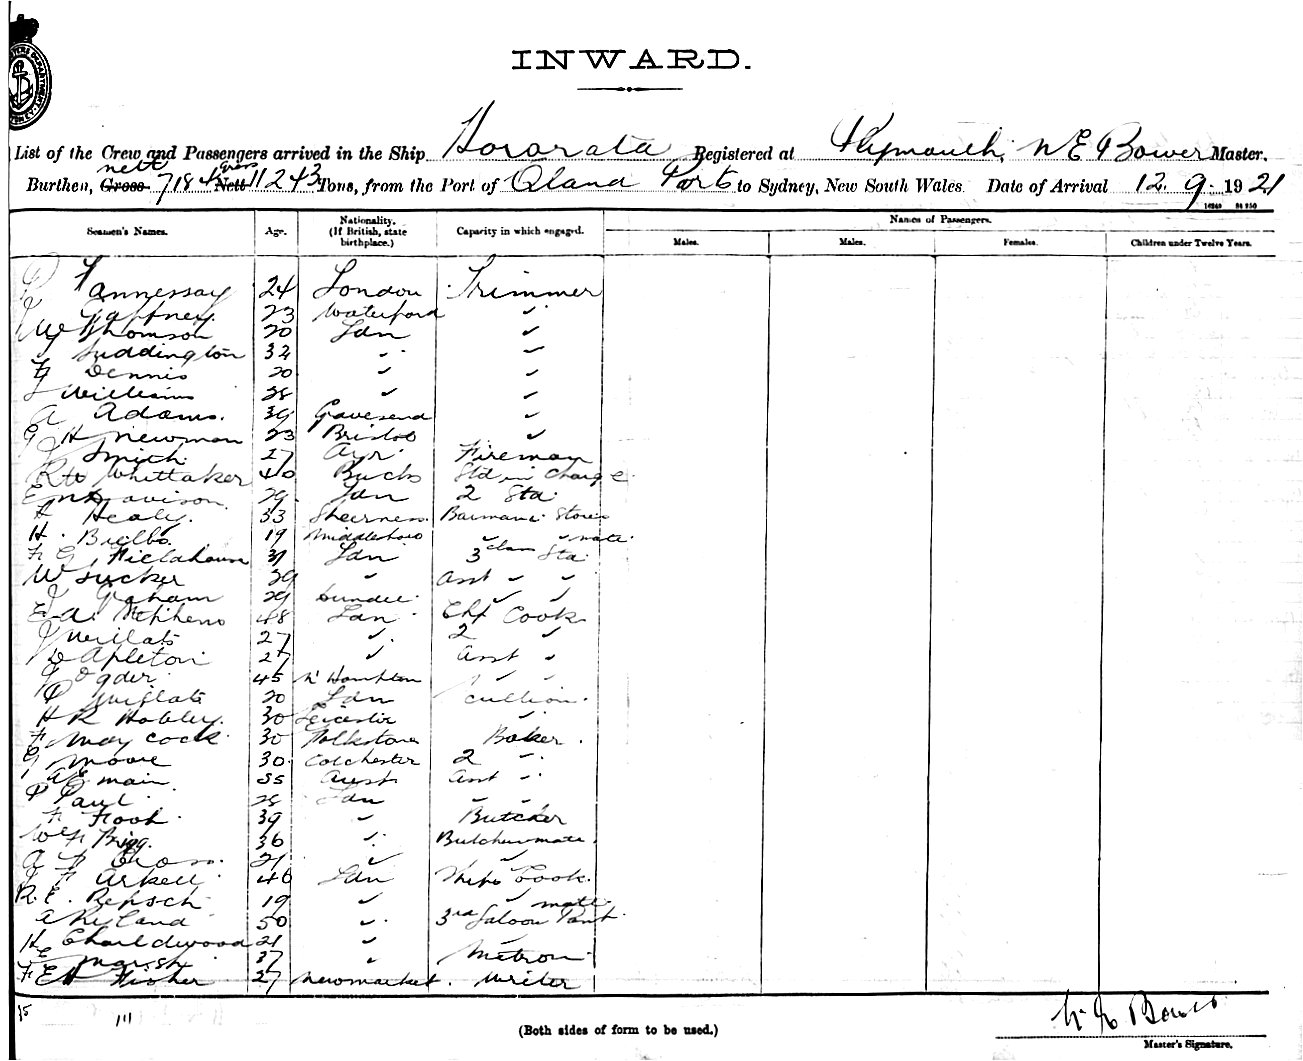 INWARD.
List of the Crew and Passengers arrived in the Ship Hororata Registered at Plymouth, W E Bower Master,
nett gross
Burthen, Gross 7184 Nett 11243 Tons, from the Port of Qland Ports to Sydney, New South Wales. Date of Arrival 12. 9. 1921
Names of Passengers.
Seamen's Names. Age. Nationality. (If British, state birthplace.) Capacity in which engaged. Males. Males. Females. Children under Twelve Years.
Fannessay 24 London Trimmer
Gaffney 23 Waterford "
W Thomson 20 Ldn "
J Luddington 32 " "
Dennis 20 " "
J Williams 28 " "
A Adams. 39 Gravesend "
G H Newman 23 Bristol "
J Smith 27 Ayr Fireman
R W Whittaker 40 Bucks Std in Charge
Davison 29 Ldn 2 Std
Healy 33 Sheerness Barman Stores
H. Bielby 19 Middlesboro " " mate
F G 31 Ldn 3 class Std
W Tucker 29 " Asst " "
J Graham 29 Dundee " " "
E A. 48 Ldn Chf Cook
J 27 " 2 "
D Apleton 27 " Asst "
J Ogden 45 " "
P 20 Ldn
H R Hobley. 30 Leicester "
F May cock 30 Folkstone Baker.
G Moore 30 Colchester 2 "
A E Main 35 Aust Asst "
P Paul 28 Ldn " "
F Hook 39 " Butcher
W F Brigg. 36 " Butchers mate.
A F Cross. 21 " "
J F Arkell 46 Ldn Ships Cook.
R. E. Repsch 19 " " mate
A Ryland 50 " 3rd Saloon Pant
H Charldwood 21 " "
E Marsh 37 " Matron
F E H Fisher 27 Newmarket. Writer
35 111
(Both sides of form to be used.)
W E Bower
Master's Signature.